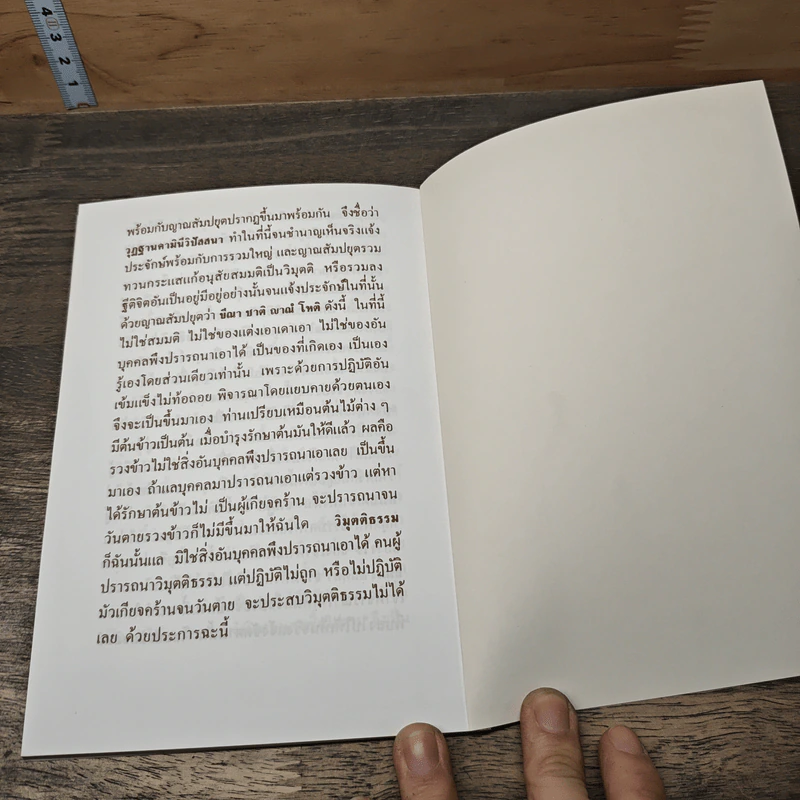 4
3
2
1
พร้อมกับญาณสัมปยุตปรากฏขึ้นมาพร้อมกัน จึงชื่อว่า
วุฏฐานคามินีวิปัสสนา ทำในที่นี้จนชำนาญเห็นจริงแจ้ง
ประจักษ์พร้อมกับการรวมใหญ่ และญาณสัมปยุตรวม
ทวนกระแสแก้อนุสัยสมมติเป็นวิมุตติ หรือรวมลง
ฐีติจิตอันเป็นอยู่มีอยู่อย่างนั้นจนแจ้งประจักษ์ในที่นั้น
ด้วยญาณสัมปยุตว่า ขีณา ชาติ ญาณํ โหติ ดังนี้ ในที่นี้
ไม่ใช่สมมติ ไม่ใช่ของแต่งเอาเดาเอา ไม่ใช่ของอัน
บุคคลพึงปรารถนาเอาได้ เป็นของที่เกิดเอง เป็นเอง
รู้เองโดยส่วนเดียวเท่านั้น เพราะด้วยการปฏิบัติอัน
เข้มแข็งไม่ท้อถอย พิจารณาโดยแยบคายด้วยตนเอง
จึงจะเป็นขึ้นมาเอง ท่านเปรียบเหมือนต้นไม้ต่าง ๆ
มีต้นข้าวเป็นต้น เมื่อบำรุงรักษาต้นมันให้ดีแล้ว ผลคือ
รวงข้าวไม่ใช่สิ่งอันบุคคลพึงปรารถนาเอาเลย เป็นขึ้น
มาเอง ถ้าแลบุคคลมาปรารถนาเอาแต่รวงข้าว แต่หา
ได้รักษาต้นข้าวไม่ เป็นผู้เกียจคร้าน จะปรารถนาจน
วันตายรวงข้าวก็ไม่มีขึ้นมาให้ฉันใด วิมุตติธรรม
ก็ฉันนั้นแล มิใช่สิ่งอันบุคคลพึงปรารถนาเอาได้ คนผู้
ปรารถนาวิมุตติธรรม แต่ปฏิบัติไม่ถูก หรือไม่ปฏิบัติ
มัวเกียจคร้านจนวันตาย จะประสบวิมุตติธรรมไม่ได้
เลย ด้วยประการฉะนี้